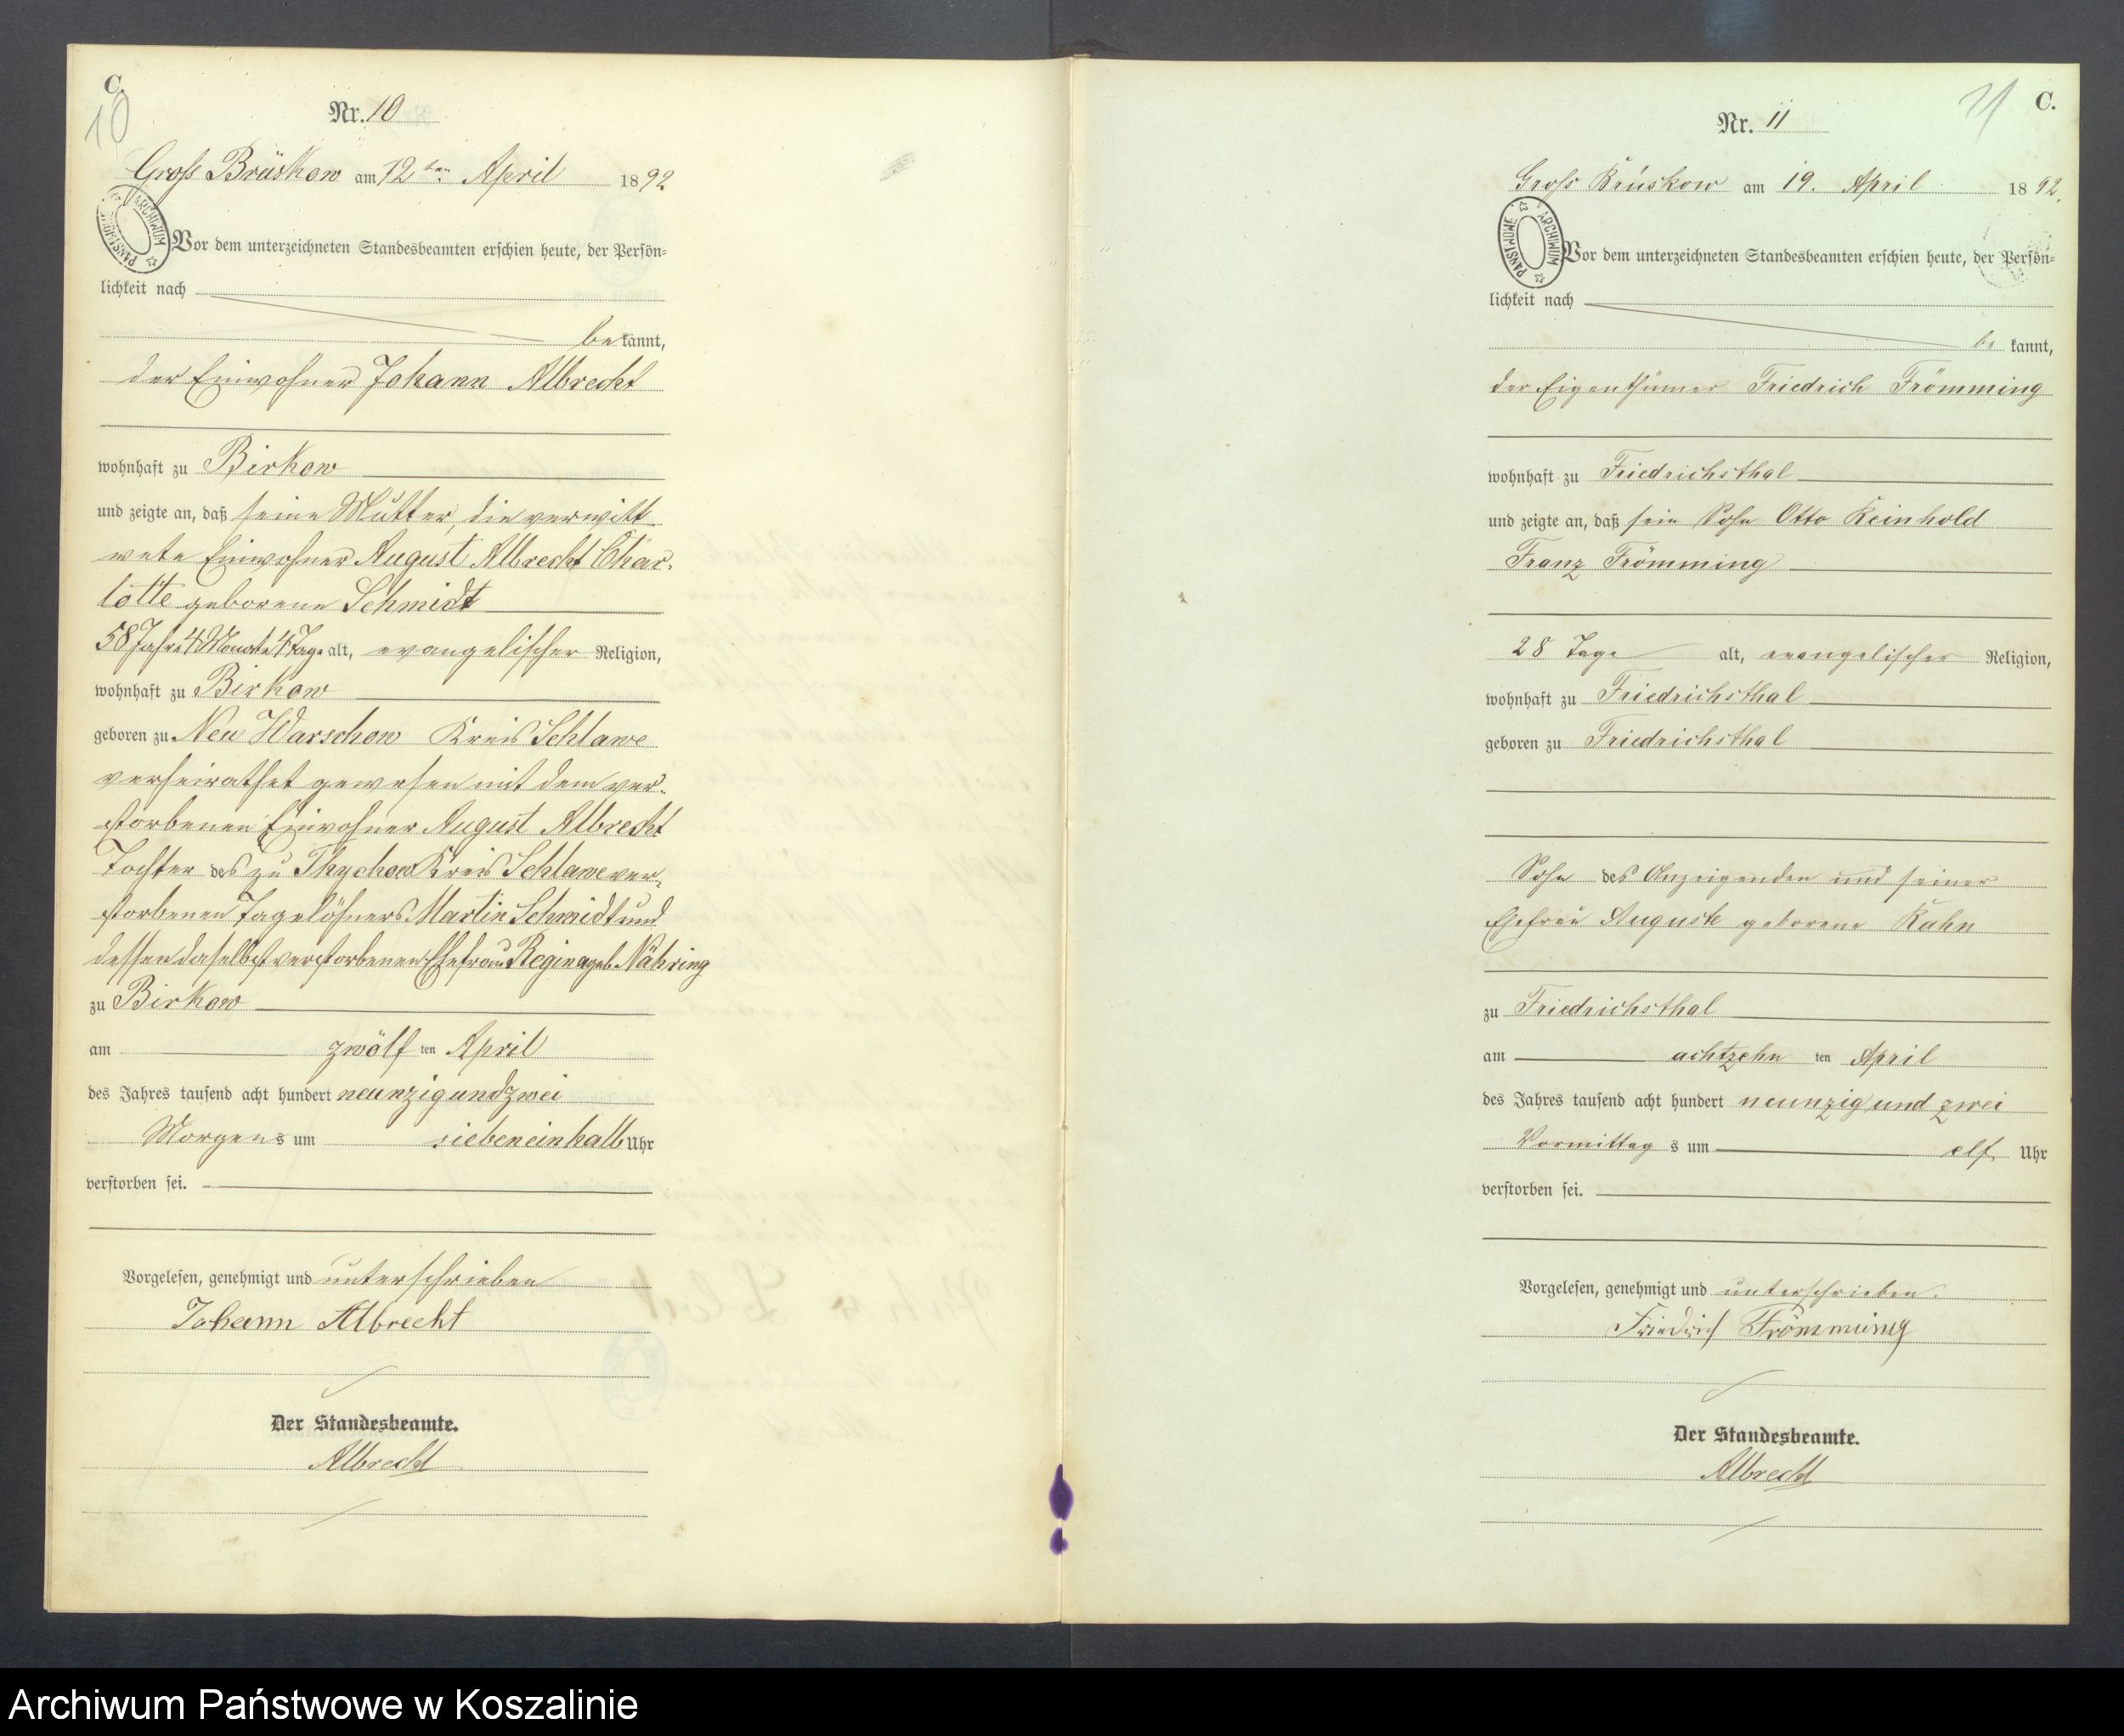 C.
10
Nr. 10
Groß Brüskow am 12ten April 1892
ARCHIWUM PAŃSTWOWE
Vor dem unterzeichneten Standesbeamten erschien heute, der Persön-
lichkeit nach
bekannt,
der Einwohner Johann Albrecht
wohnhaft zu Birkow
und zeigte an, daß seine Mutter, die verwitt-
wete Einwohner August Albrecht Char-
lotte geborene Schmidt
58 Jahre 4 Monate 4 Tage alt, evangelischer Religion,
wohnhaft zu Birkow
geboren zu Neu Warschow Kreis Schlawe
verheirathet gewesen mit dem ver-
storbenen Einwohner August Albrecht
Tochter des zu Thychow Kreis Schlawe ver-
storbenen Tagelöhners Martin Schmidt und
dessen daselbst verstorbenen Ehefrau Regina geb. Nähring
zu Birkow
am zwölf ten April
des Jahres tausend acht hundert neunzig und zwei
Morgens um siebeneinhalb Uhr
verstorben sei.
Vorgelesen, genehmigt und unterschrieben
Johann Albrecht
Der Standesbeamte.
Albrecht
C.
11
Nr. 11
Groß Brüskow am 19. April 1892.
ARCHIWUM PAŃSTWOWE
Vor dem unterzeichneten Standesbeamten erschien heute, der Persön-
lichkeit nach
be kannt,
der Eigenthümer Friedrich Frömming
wohnhaft zu Friedrichsthal
und zeigte an, daß sein Sohn Otto Reinhold
Franz Frömming
28 Tage alt, evangelischer Religion,
wohnhaft zu Friedrichsthal
geboren zu Friedrichsthal
Sohn des Anzeigenden und seiner
Ehefrau Auguste geborene Kuhn
zu Friedrichsthal
am achtzehn ten April
des Jahres tausend acht hundert neunzig und zwei
Vormittag s um elf Uhr
verstorben sei.
Vorgelesen, genehmigt und unterschrieben.
Friedrich Frömming
Der Standesbeamte.
Albrecht
Archiwum Państwowe w Koszalinie